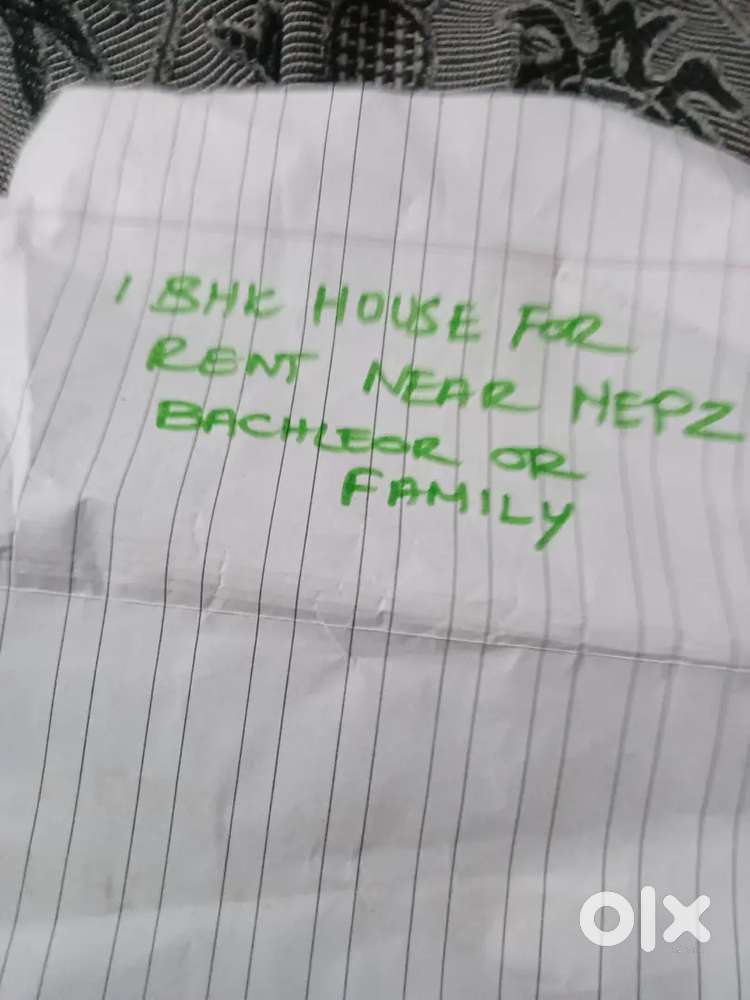 1 BHK HOUSE FOR
RENT NEAR NEPZ
BACHLEOR OR
FAMILY
olx